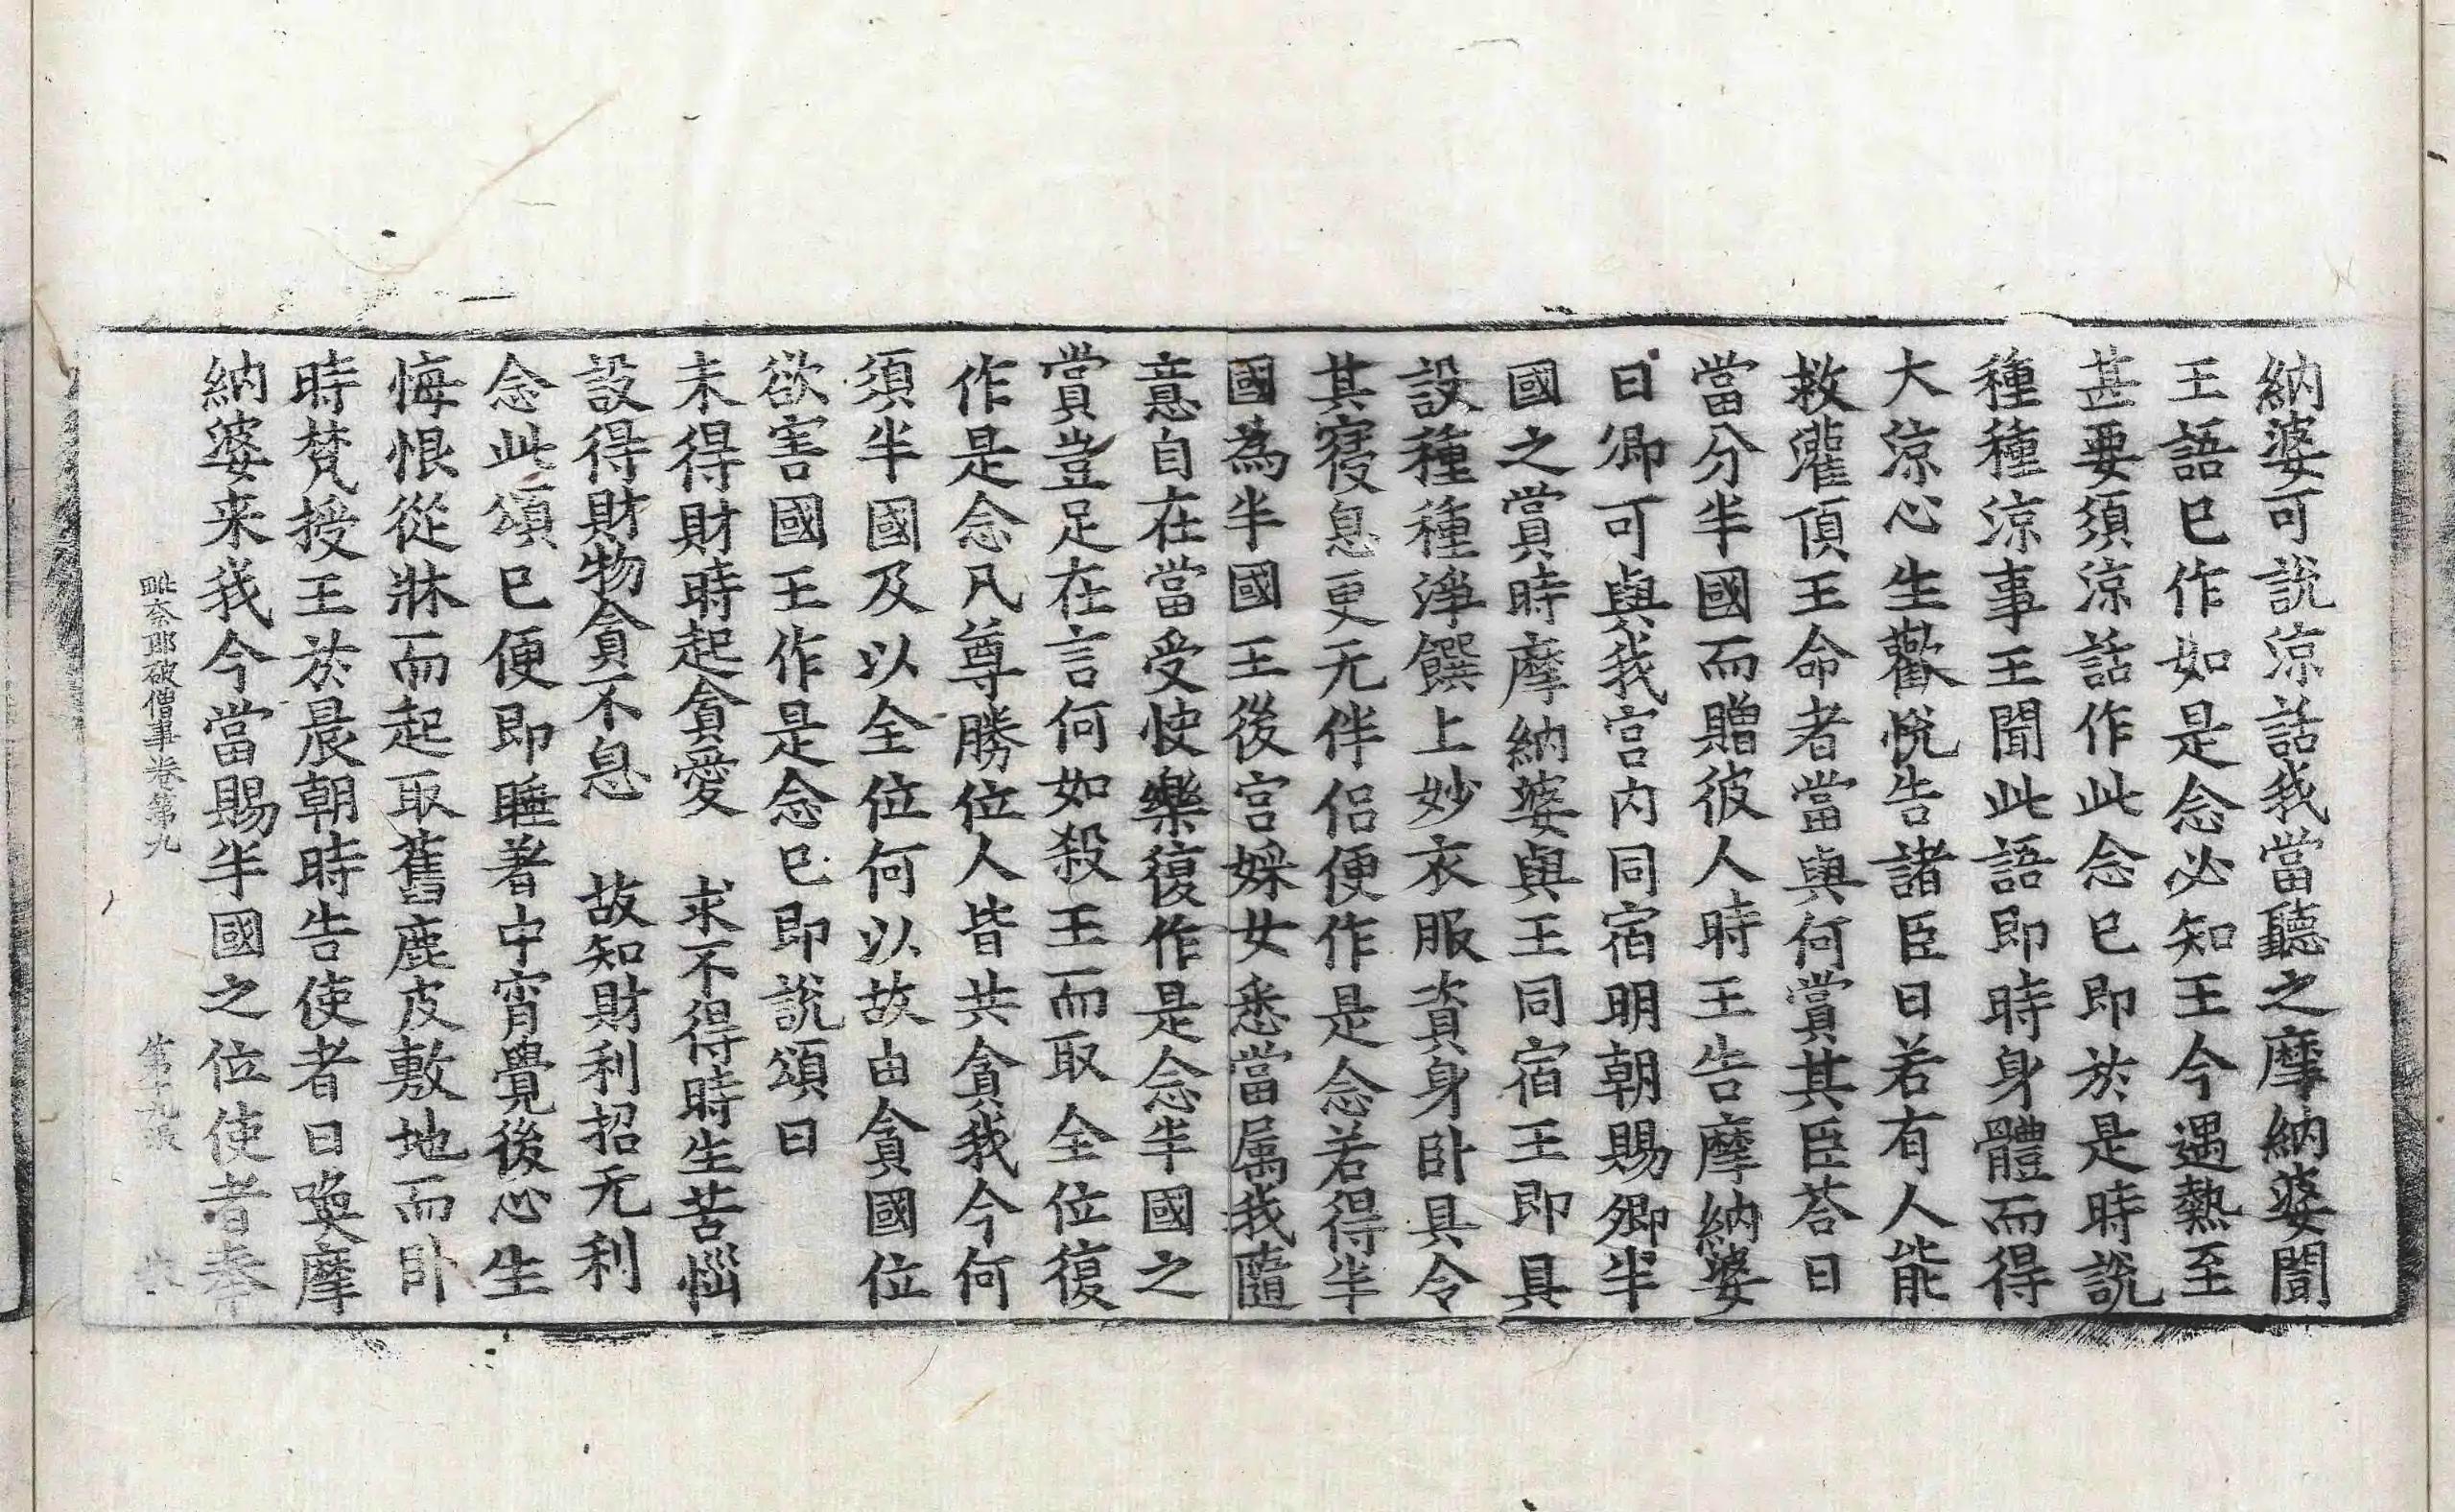 納婆可說涼話我當聽之摩納婆聞
王語已作如是念必知王今遇熱至
甚要須涼話作此念已即於是時說
種種涼事王聞此語即時身體而得
大涼心生歡悅告諸臣曰若有人能
救灌頂王命者當與何賞其臣荅曰
當分半國而贈彼人時王告摩納婆
曰卿可與我宮內同宿明朝賜卿半
國之賞時摩納婆與王同宿王即具
設種種淨饌上妙衣服資身卧具令
其寑息更无伴侶便作是念若得半
國為半國王後宮婇女悉當属我隨
意自在當受快樂復作是念半國之
賞豈足在言何如殺王而取全位復
作是念凡尊勝位人皆共貪我今何
須半國及以全位何以故由貪國位
欲害國王作是念已即說頌曰
未得財時起貪愛　求不得時生苦惱
設得財物貪不息　故知財利招无利
念此頌已便即睡著中宵覺後心生
悔恨從牀而起取舊鹿皮敷地而卧
時梵授王於晨朝時告使者曰喚摩
納婆来我今當賜半國之位使者奉
毗奈耶破僧事卷第九　第十九張